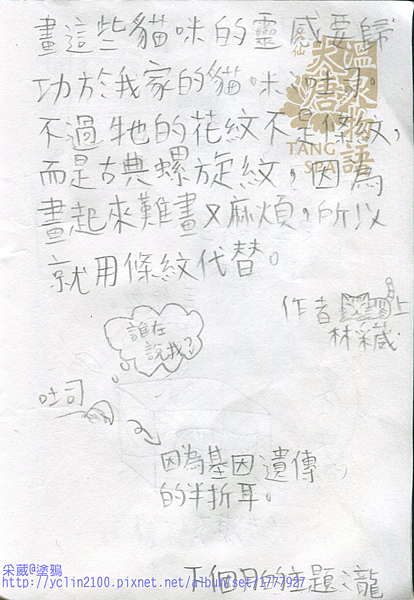 畫這些貓咪的靈感要歸
功於我家的貓咪:吐司
不過牠的花紋不是條紋,
而是古典螺旋紋,因為
畫起來難畫又麻煩,所以
就用條紋代替。
溫泉物語
TANG
SPA
作者
上
林采葳
誰在
說我?
吐司
因為基因遺傳
的半折耳。
下個月的主題:龍
采葳@塗鴉
http://yclin2100.pixnet.net/album/set/1777927